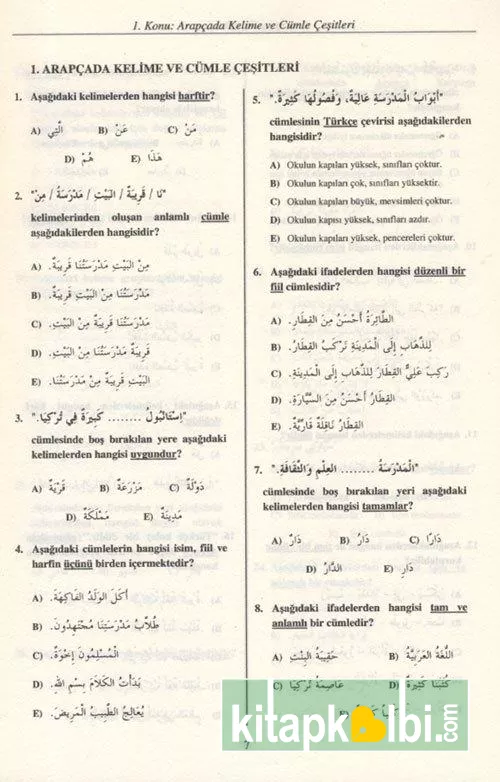 1. Konu: Arapçada Kelime ve Cümle Çeşitleri
1. ARAPÇADA KELİME VE CÜMLE ÇEŞİTLERİ
1. Aşağıdaki kelimelerden hangisi harftir?
A) الَّتِي B) عَنْ C) مَنْ
D) هُمْ E) هَذَا
2. "نَا / قَرِيبَةٌ / البَيْتِ / مَدْرَسَةُ / مِنْ"
kelimelerinden oluşan anlamlı cümle
aşağıdakilerden hangisidir?
A) مِنْ البَيْتِ مَدْرَسَتُنَا قَرِيبَةٌ.
B) مَدْرَسَتُنَا مِنْ البَيْتِ قَرِيبَةٌ.
C) مَدْرَسَتُنَا قَرِيبَةٌ مِنْ البَيْتِ.
D) قَرِيبَةٌ مَدْرَسَتُنَا مِنْ البَيْتِ.
E) البَيْتِ قَرِيبَةٌ مِنْ مَدْرَسَتُنَا.
3. "إِسْتَانْبُولُ ........ كَبِيرَةٌ فِي تُرْكِيَا."
cümlesinde boş bırakılan yere aşağıdaki
kelimelerden hangisi uygundur?
A) قَرْيَةٌ B) مَزْرَعَةٌ C) دَوْلَةٌ
D) مَمْلَكَةٌ E) مَدِينَةٌ
4. Aşağıdaki cümlelerin hangisi isim, fiil ve
harfin üçünü birden içermektedir?
A) أَكَلَ الوَلَدُ الفَاكِهَةَ.
B) طُلَّابُ مَدْرَسَتِنَا مُجْتَهِدُونَ.
C) الْمُسْلِمُونَ إِخْوَةٌ.
D) بَدَأْتُ الكَلَامَ بِسْمِ اللهِ.
E) يُعَالِجُ الطَّبِيبُ الْمَرِيضَ.
5. "أَبْوَابُ الْمَدْرَسَةِ عَالِيَةٌ، وَفُصُولُهَا كَثِيرَةٌ."
cümlesinin Türkçe çevirisi aşağıdakilerden
hangisidir?
A) Okulun kapıları yüksek, sınıfları çoktur.
B) Okulun kapıları çok, sınıfları yüksektir.
C) Okulun kapıları büyük, mevsimleri çoktur.
D) Okulun kapısı yüksek, sınıfları azdır.
E) Okulun kapıları yüksek, pencereleri çoktur.
6. Aşağıdaki ifadelerden hangisi düzenli bir
fiil cümlesidir?
A) الطَّائِرَةُ أَحْسَنُ مِنَ القِطَارِ.
B) لِلذَّهَابِ إِلَى الْمَدِينَةِ نَرْكَبُ القِطَارَ.
C) رَكِبَ عَلِيٌّ القِطَارَ لِلذَّهَابِ إِلَى الْمَدِينَةِ.
D) القِطَارُ أَحْسَنُ مِنَ السَّيَّارَةِ.
E) القِطَارُ نَاقِلَةٌ قَارِّيَّةٌ.
7. "الْمَدْرَسَةُ ........ العِلْمِ وَالثَّقَافَةِ."
cümlesinde boş bırakılan yeri aşağıdaki
kelimelerden hangisi tamamlar?
A) دَارٌ B) دَارُ C) دَارًا
D) الدَّارُ E) دَارِ
8. Aşağıdaki ifadelerden hangisi tam ve
anlamlı bir cümledir?
A) حَقِيبَةُ الْبِنْتِ B) اللُّغَةُ العَرَبِيَّةُ
C) عَاصِمَةُ تُرْكِيَا D) كُتُبُنَا كَثِيرَةٌ
E)
kitapkalbi.com
7